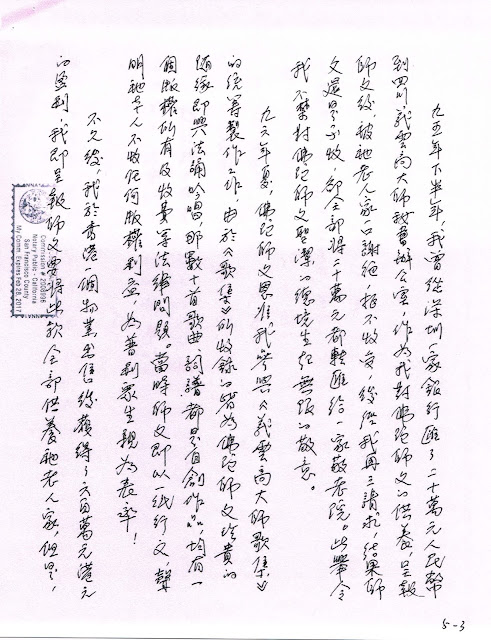 九五年下半年，我曾從深圳一家銀行匯了二十萬元人民幣
到四川義雲高大師秘書辦公室，作為我對佛陀師父的供養，呈報
師父後，被祂老人家口謝絕，拒不收受，後經我再三請求，結果師
父還是不收，卻全部將二十萬元都轉匯給一家敬老院。此舉令
我不禁對佛陀師父聖潔的德境生起無限的敬意。
九六年夏，佛陀師父恩准我參與《義雲高大師歌集》
的統籌製作工作，由於《歌集》所收錄的皆為佛陀師父珍貴的
隨緣即興法誦吟唱，那數十首歌曲詞譜都是自創作品，均有一
個版權所有及收費等法律問題。當時師父即以一紙行文聲
明祂本人不收任何版權利益，為普利眾生親為表率！
不久後，我於香港一個物業出售後獲得了六百萬元港元
的盈利，我即呈報師父要將此款全部供養祂老人家，但是，
Commission # 2008996
Notary Public - California
San Francisco County
My Comm. Expires Feb 28, 2017
5-3